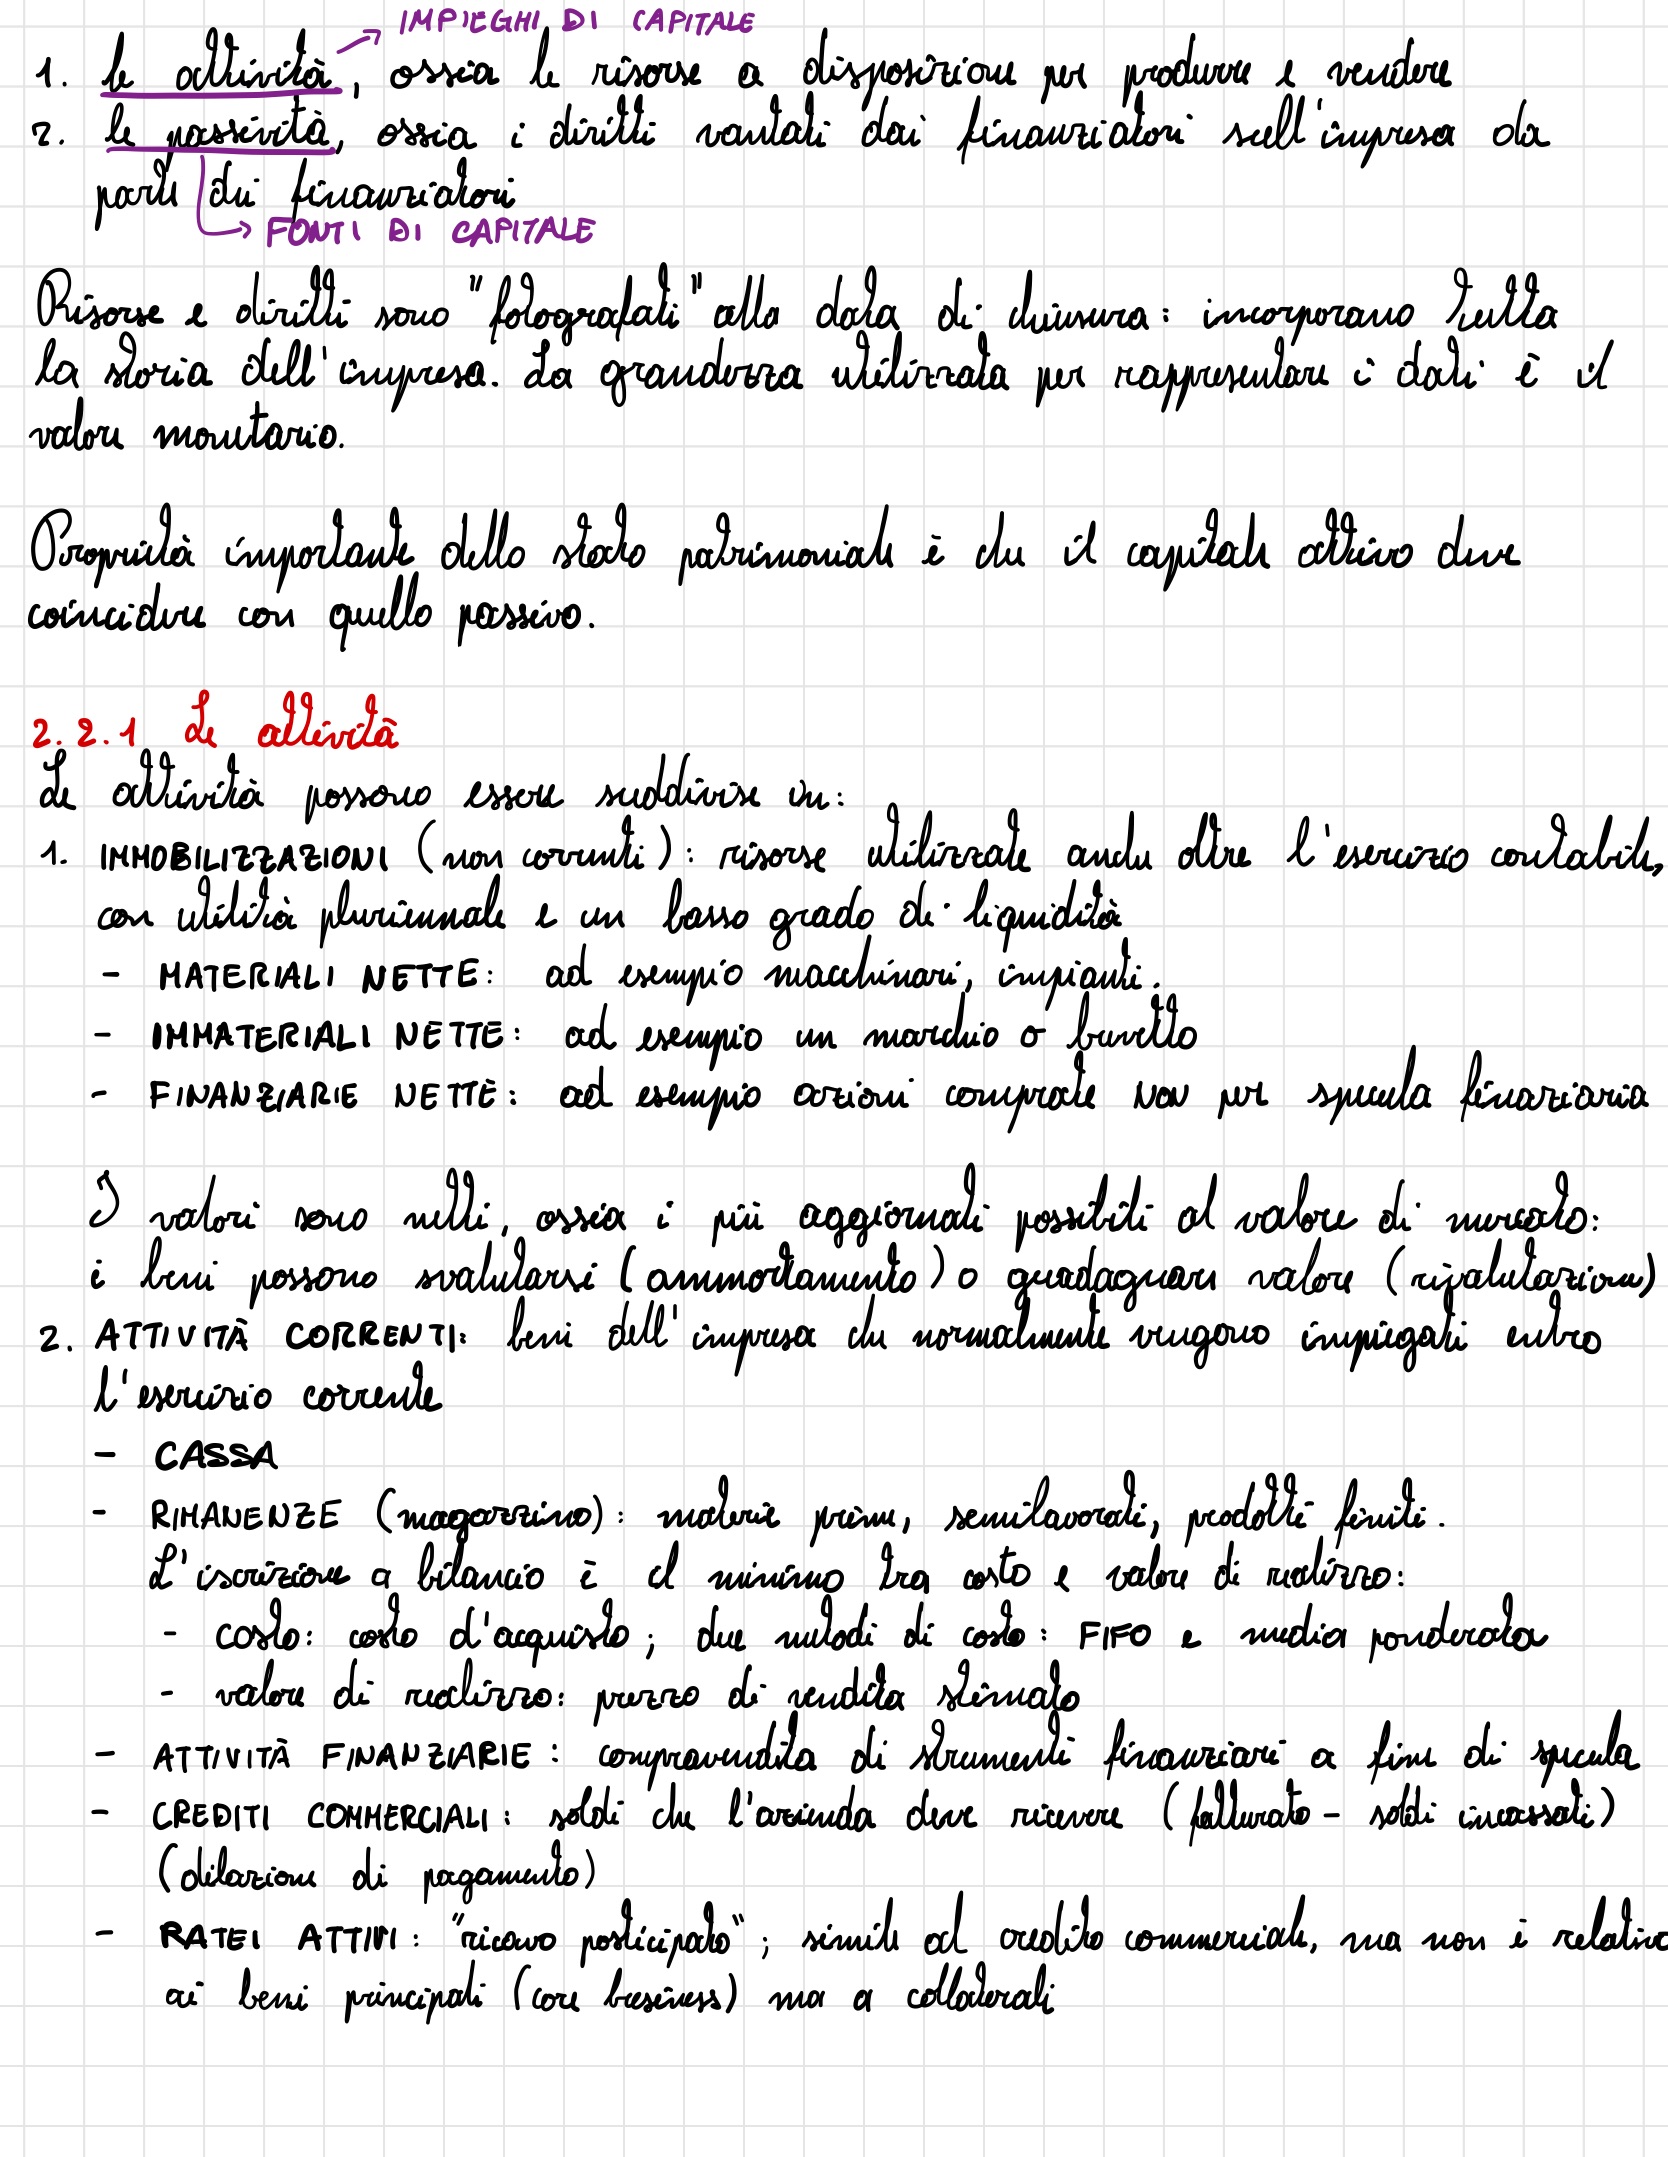 IMPIEGHI DI CAPITALE
1. le attività, ossia le risorse a disposizione per produrre e vendere
2. le passività, ossia i diritti vantati dai finanziatori sull'impresa da
parte dei finanziatori
FONTI DI CAPITALE
Risorse e diritti sono "fotografati" alla data di chiusura: incorporano tutta
la storia dell'impresa. La grandezza utilizzata per rappresentare i dati è il
valore monetario.
Proprietà importante dello stato patrimoniale è che il capitale attivo deve
coincidere con quello passivo.
2.2.1 Le attività
Le attività possono essere suddivise in:
1. IMMOBILIZZAZIONI (non correnti): risorse utilizzate anche oltre l'esercizio contabile,
con utilità pluriennale e un basso grado di liquidità
- MATERIALI NETTE: ad esempio macchinari, impianti.
- IMMATERIALI NETTE: ad esempio un marchio o brevetto
- FINANZIARIE NETTE: ad esempio azioni comprate NON per specula finanziaria
I valori sono netti, ossia i più aggiornati possibili al valore di mercato:
i beni possono svalutarsi (ammortamento) o guadagnare valore (rivalutazione)
2. ATTIVITÀ CORRENTI: beni dell'impresa che normalmente vengono impiegati entro
l'esercizio corrente
- CASSA
- RIMANENZE (magazzino): materie prime, semilavorati, prodotti finiti.
L'iscrizione a bilancio è il minimo tra costo e valore di realizzo:
- costo: costo d'acquisto; due metodi di costo: FIFO e media ponderata
- valore di realizzo: prezzo di vendita stimato
- ATTIVITÀ FINANZIARIE: compravendita di strumenti finanziari a fine di specula
- CREDITI COMMERCIALI: soldi che l'azienda deve ricevere (fatturato - soldi incassati)
(dilazione di pagamento)
- RATEI ATTIVI: "ricavo posticipato"; simile al credito commerciale, ma non è relativo
ai beni principali (core business) ma a collaterali